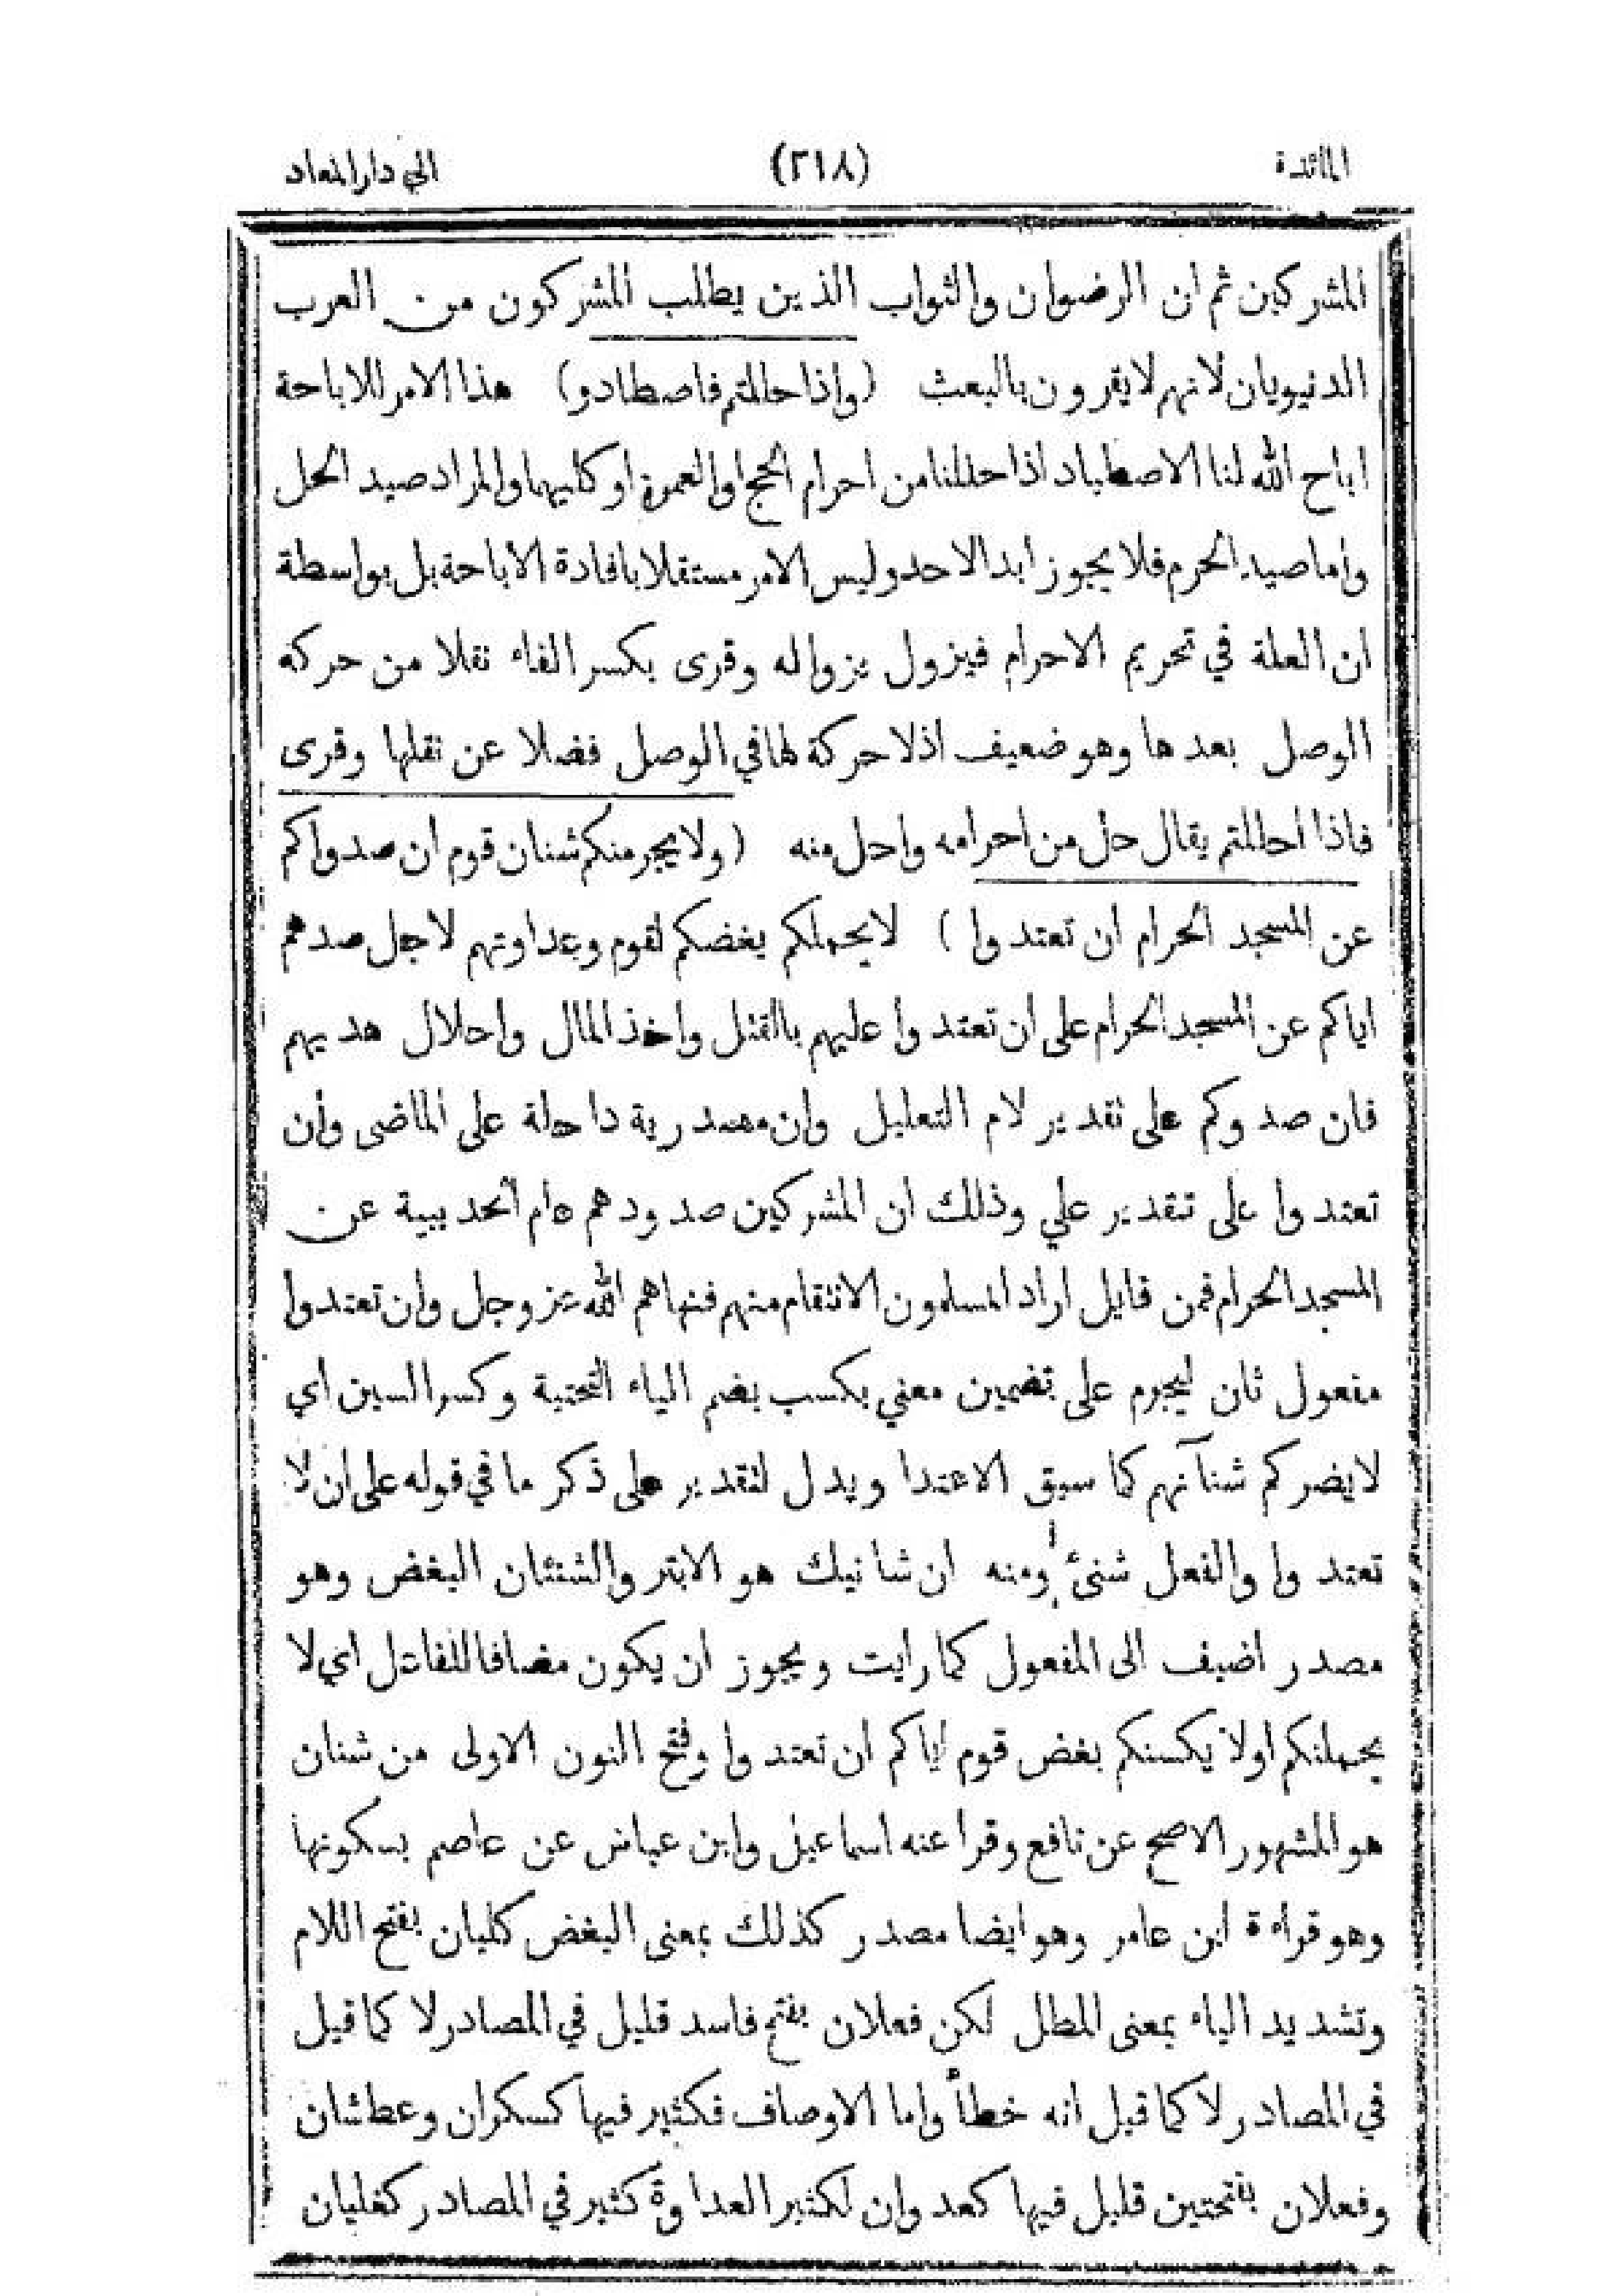 المائدة (٢١٨) الي دار المعاد
المشركين ثم ان الرضوان والثواب الذين يطلب المشركون من العرب
الدنيويان لانهم لا يقرون بالبعث (واذا حللتم فاصطادو) هذا الامر للاباحة
اباح الله لنا الاصطياد اذا حللنا من احرام الحج او العمرة او كليهما والمراد صيد الحل
واما صيد الحرم فلا يجوز ابدا لاحد وليس الامر مستقلا بافادة الاباحة بل بواسطة
ان العلة في تحريم الاحرام فيزول بزواله وقرى بكسر الفاء نقلا من حركه
الوصل بعدها وهو ضعيف اذ لا حركة لها في الوصل فضلا عن نقلها وقرى
فاذا احللتم يقال حل من احرامه واحل منه (ولا يجرمنكم شنان قوم ان صدواكم
عن المسجد الحرام ان تعتدوا) لا يحملكم بغضكم لقوم وعداوتهم لاجل صدهم
اياكم عن المسجد الحرام على ان تعتدوا عليهم بالقتل واخذ المال واحلال هديهم
فان صدوكم على تقدير لام التعليل وان مصدرية داخلة على الماضى وأن
تعتدوا على تقدير علي وذلك ان المشركين صدودهم عام الحديبية عن
المسجد الحرام فمن قايل اراد المسلمون الانتقام منهم فنهاهم الله عز وجل وان تعتدوا
مفعول ثان ليجرم على تضمين معني يكسب بضم الياء التحتية وكسر السين اي
لا يضركم شنآنهم كما سبق الاعتدا ويدل لتقدير على ذكر ما في قوله على ان لا
تعتدوا والفعل شنئ ومنه ان شانيك هو الابتر والشنئان البغض وهو
مصدر اضيف الى المفعول كما رايت ويجوز ان يكون مضافا للفاعل اي لا
يحملنكم اولا يكسنكم بغض قوم اياكم ان تعتدوا وفتح النون الاولى من شنان
هو المشهور الاصح عن نافع وقرا عنه اسماعيل وابن عياش عن عاصم بسكونها
وهو قراءة ابن عامر وهو ايضا مصدر كذلك بمعنى البغض كليان بفتح اللام
وتشديد الياء بمعنى المطل لكن فعلان بفتح فاسد قليل في المصادر لا كما قيل
في المصادر لا كما قيل انه خطأ واما الاوصاف فكثير فيها كسكران وعطشان
وفعلان بفتحتين قليل فيها كعدوان لكثير العداوة كثير في المصادر كغليان